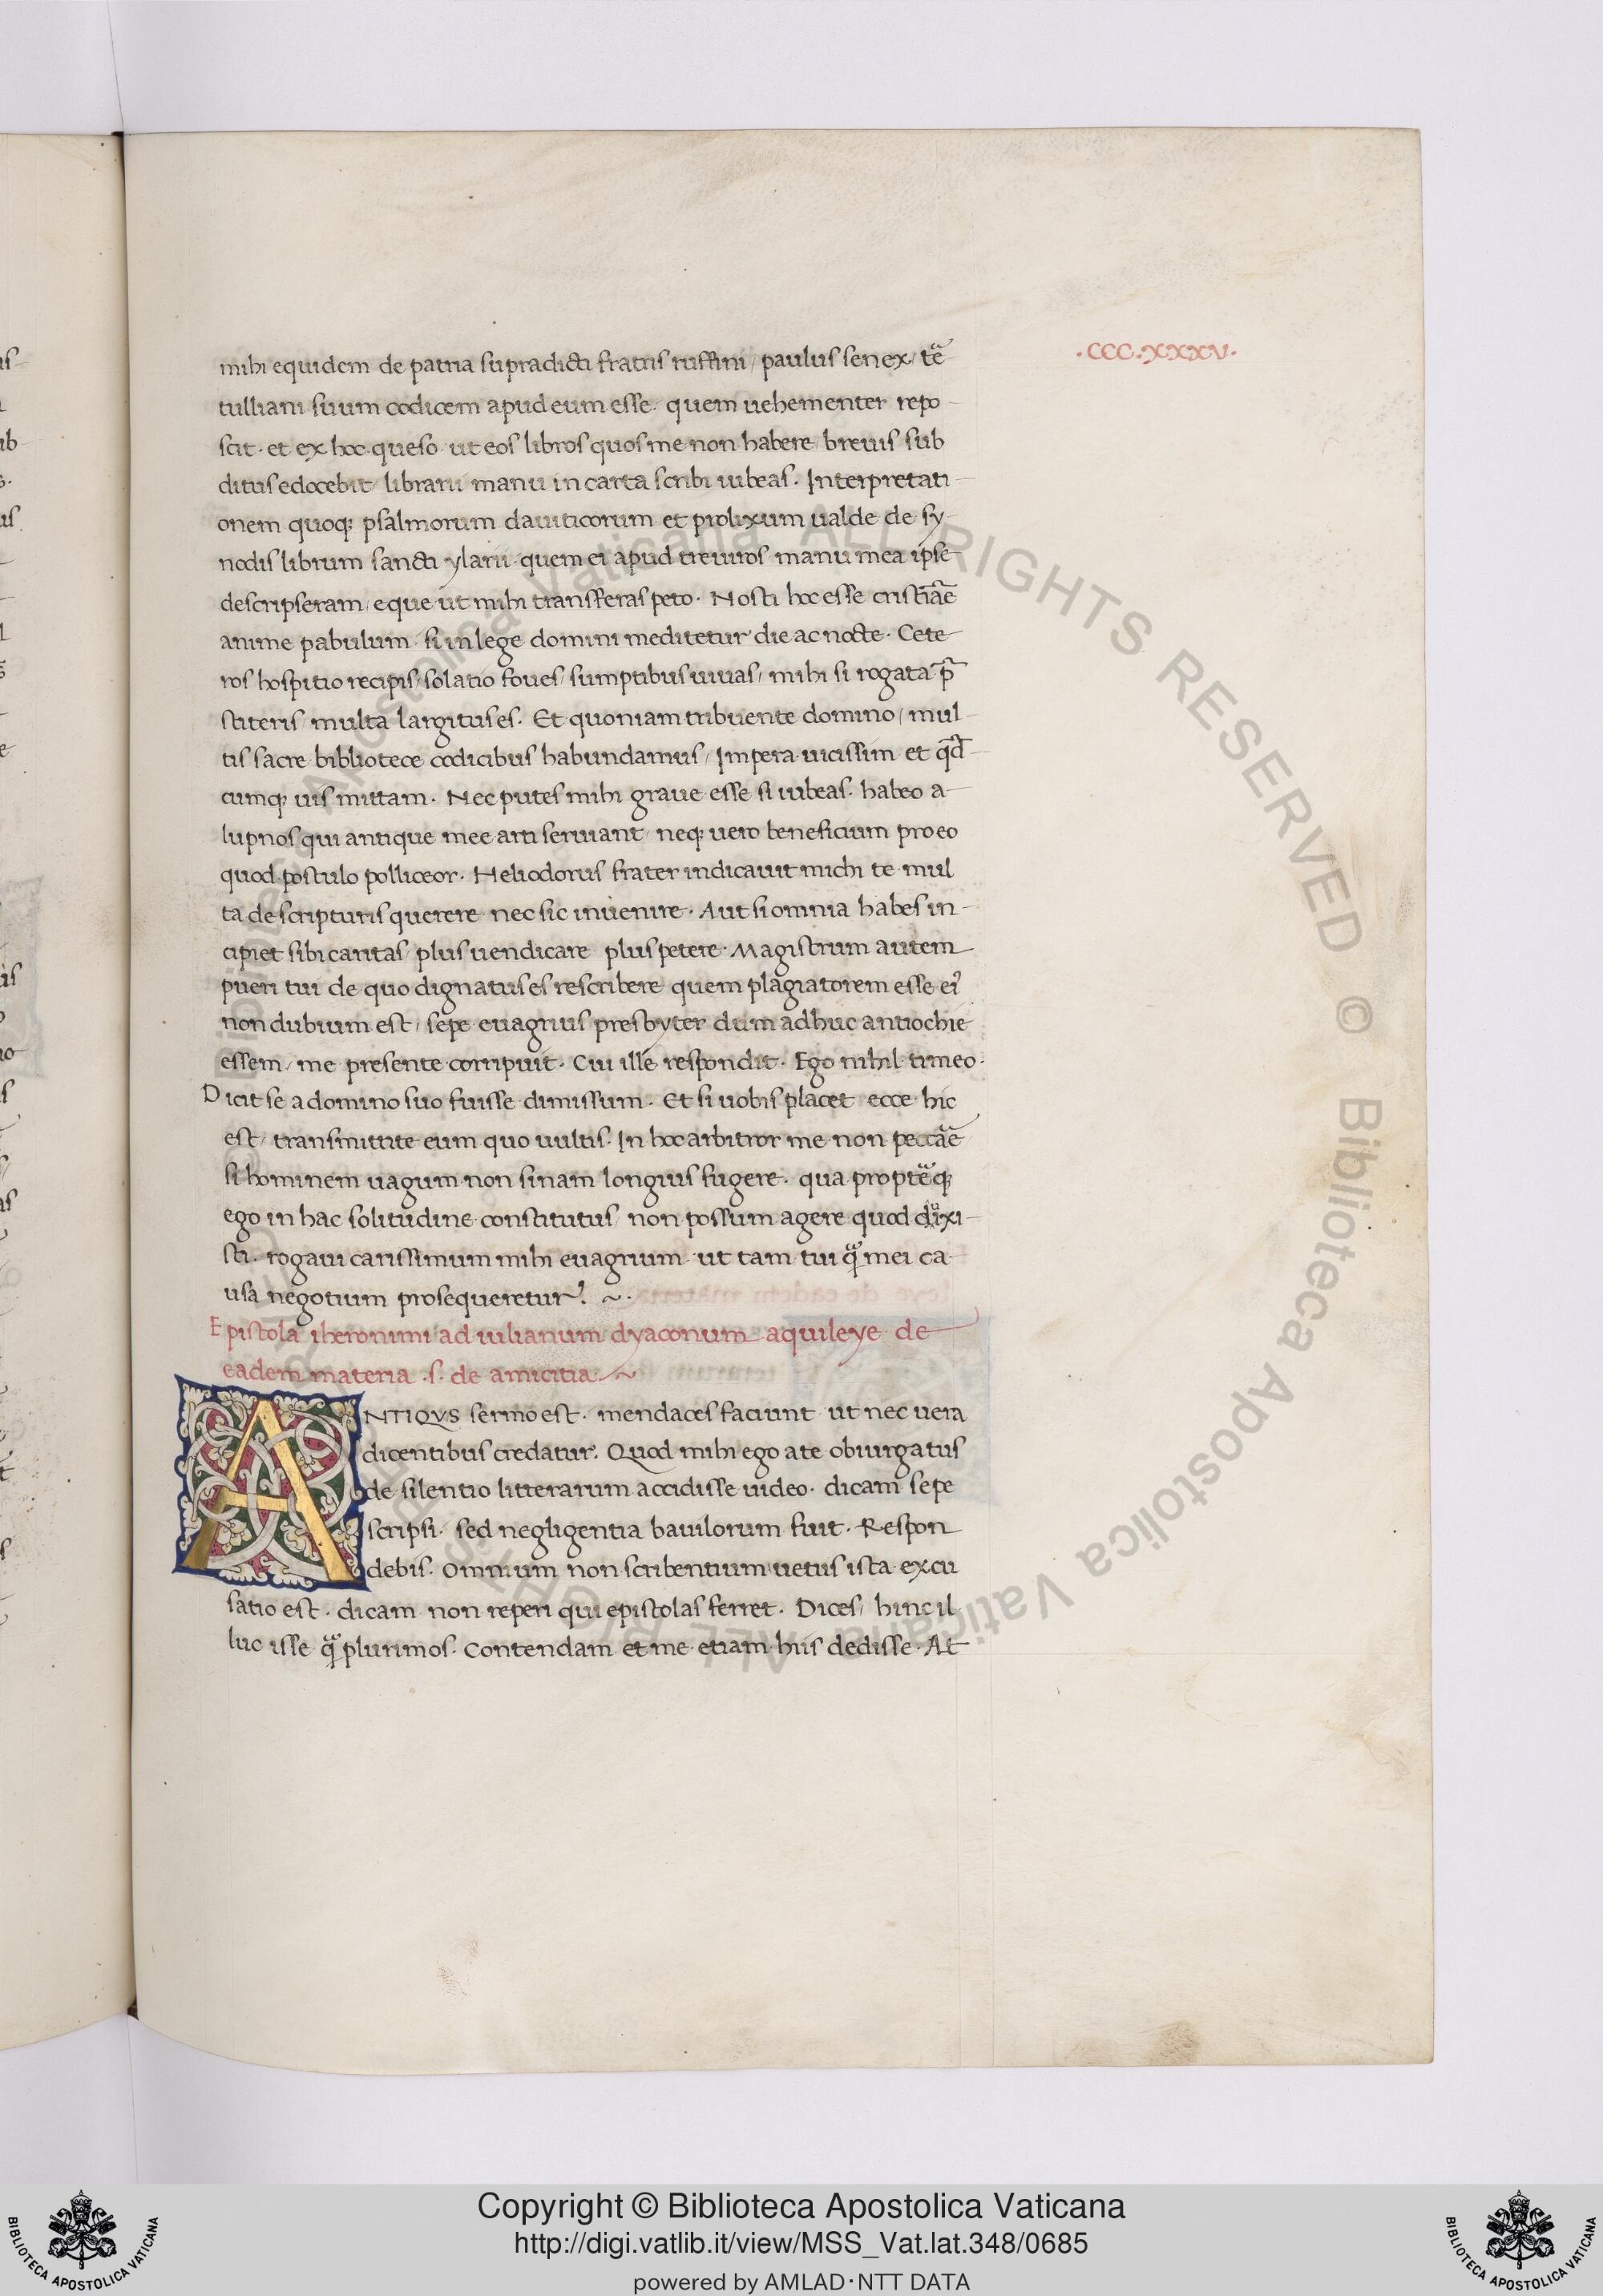 ·CCC·XXXV·
mihi equidem de patria supradicti fratris ruffini / paulus senex / teᷓ
tulliani suum codicem apud eum esse. quem uehementer repo
scit. et ex hoc queso ut eos libros quos me non habere / breuis sub
ditus edocebit / librarii manu in carta scribi iubeas. Interpretati
onem quoqꝫ psalmorum dauiticorum et prolixum ualde de sy
nodis librum sancti ylarii quem ei apud treuiros manu mea ipse
descripseram / eque ut mihi transferas peto. Nosti hoc esse cristia̅e
anime pabulum si in lege domini meditetur die ac nocte. Cete
ros hospitio recipis / solatio foues / sumptibus iuuas / mihi si rogata p̅
stiteris / multa largitus es. Et quoniam tribuente domino / mul
tis sacre bibliotece codicibus habundamus / Impera uicissim et qd̅
cumqꝫ uis mittam. Nec putes mihi graue esse si iubeas. habeo a
lupnos qui antique mee arti seruiant / neqꝫ uero beneficium pro eo
quod postulo polliceor. Heliodorus frater indicauit michi te mul
ta de scripturis querere nec sic inuenire. Aut si omnia habes in
cipiet sibi caritas / plus uendicare plus petere. Magistrum autem
pueri tui de quo dignatus es rescribere quem plagiatorem esse ei᾽
non dubium est / sepe euagrius presbyter dum adhuc antiochie
essem / me presente corripuit. Cui ille respondit. Ego nihil timeo.
Dicit se a domino suo fuisse dimissum. Et si uobis placet ecce hic
est / transmittite eum quo uultis. In hoc arbitror me non pecca̅e
si hominem uagum non sinam longius fugere. qua propteᷓ qꝫ
ego in hac solitudine constitutus / non possum agere quod dixi
sti. rogaui carissimum mihi euagrium ut tam tui qᷓ mei ca
usa negotium prosequeretur. ~.
Epistola iheronimi ad iulianum dyaconum aquileye de
eadem materia .s. de amicitia. ~
ANTIQVS sermo est. mendaces faciunt ut nec uera
dicentibus credatur. Quod mihi ego a te obiurgatus
de silentio litterarum accidisse uideo. dicam sepe
scripsi. sed negligentia bauilorum fuit. Respon
debis. Omnium non scribentium uetus ista excu
satio est. dicam non reperi qui epistolas ferret. Dices / hinc il
luc isse qᷓ plurimos. Contendam et me etiam hiis dedisse. At
Copyright © Biblioteca Apostolica Vaticana
http://digi.vatlib.it/view/MSS_Vat.lat.348/0685
powered by AMLAD·NTT DATA
BIBLIOTECA APOSTOLICA VATICANA
BIBLIOTECA APOSTOLICA VATICANA
© Biblioteca Apostolica Vaticana ALL RIGHTS RESERVED © Biblioteca Apostolica Vaticana ALL RIGHTS RESERVED